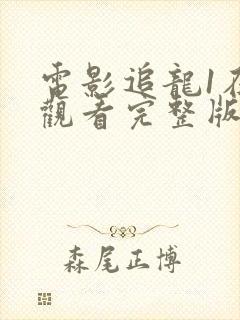 電影追龍1在
觀看完整版
森尾正博